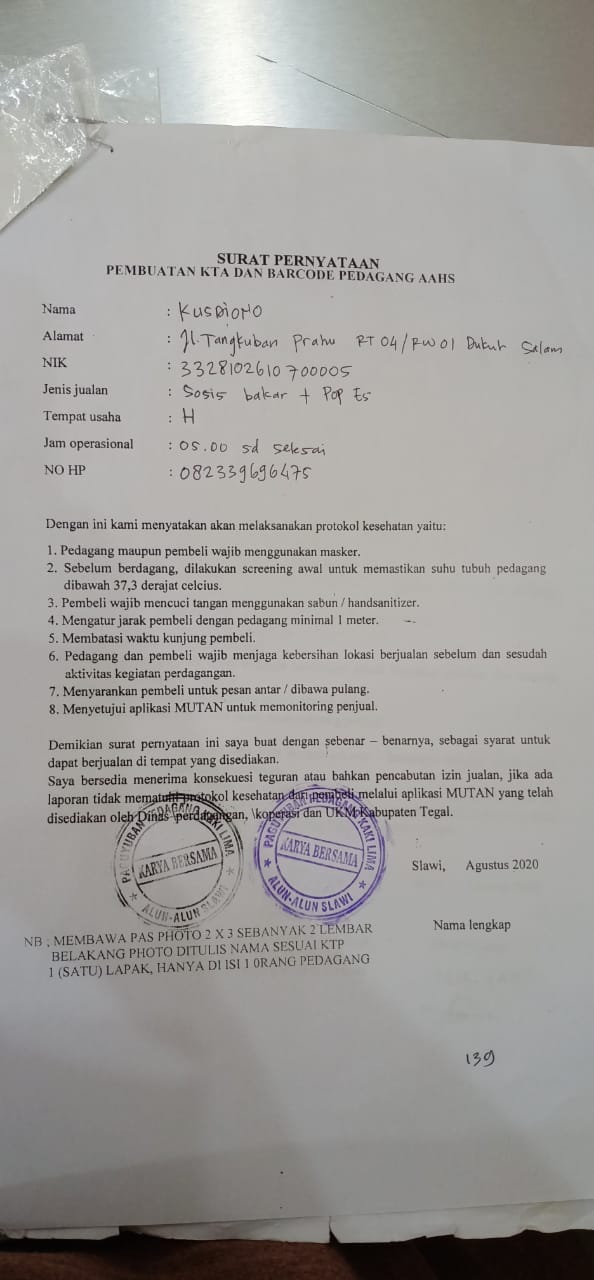 SURAT PERNYATAAN
PEMBUATAN KTA DAN BARCODE PEDAGANG AAHS
Nama : KUSDIONO
Alamat : Jl. Tangkuban Prahu RT 04/RW 01 Dukuh Salam
NIK : 3328102610700005
Jenis jualan : Sosis bakar + Pop Es
Tempat usaha : H
Jam operasional : 05.00 sd selesai
NO HP : 082339696475
Dengan ini kami menyatakan akan melaksanakan protokol kesehatan yaitu:
1. Pedagang maupun pembeli wajib menggunakan masker.
2. Sebelum berdagang, dilakukan screening awal untuk memastikan suhu tubuh pedagang
dibawah 37,3 derajat celcius.
3. Pembeli wajib mencuci tangan menggunakan sabun / handsanitizer.
4. Mengatur jarak pembeli dengan pedagang minimal 1 meter.
5. Membatasi waktu kunjung pembeli.
6. Pedagang dan pembeli wajib menjaga kebersihan lokasi berjualan sebelum dan sesudah
aktivitas kegiatan perdagangan.
7. Menyarankan pembeli untuk pesan antar / dibawa pulang.
8. Menyetujui aplikasi MUTAN untuk memonitoring penjual.
Demikian surat pernyataan ini saya buat dengan sebenar – benarnya, sebagai syarat untuk
dapat berjualan di tempat yang disediakan.
Saya bersedia menerima konsekuesi teguran atau bahkan pencabutan izin jualan, jika ada
laporan tidak mematuhi protokol kesehatan dari pembeli melalui aplikasi MUTAN yang telah
disediakan oleh Dinas \perdagangan, \koperasi dan UKM Kabupaten Tegal.
PAGUYUBAN PEDAGANG KAKI LIMA
KARYA BERSAMA
ALUN-ALUN SLAWI
PAGUYUBAN PEDAGANG KAKI LIMA
KARYA BERSAMA
ALUN-ALUN SLAWI
Slawi, Agustus 2020
Nama lengkap
NB : MEMBAWA PAS PHOTO 2 X 3 SEBANYAK 2 LEMBAR
BELAKANG PHOTO DITULIS NAMA SESUAI KTP
1 (SATU) LAPAK, HANYA DI ISI 1 0RANG PEDAGANG
139